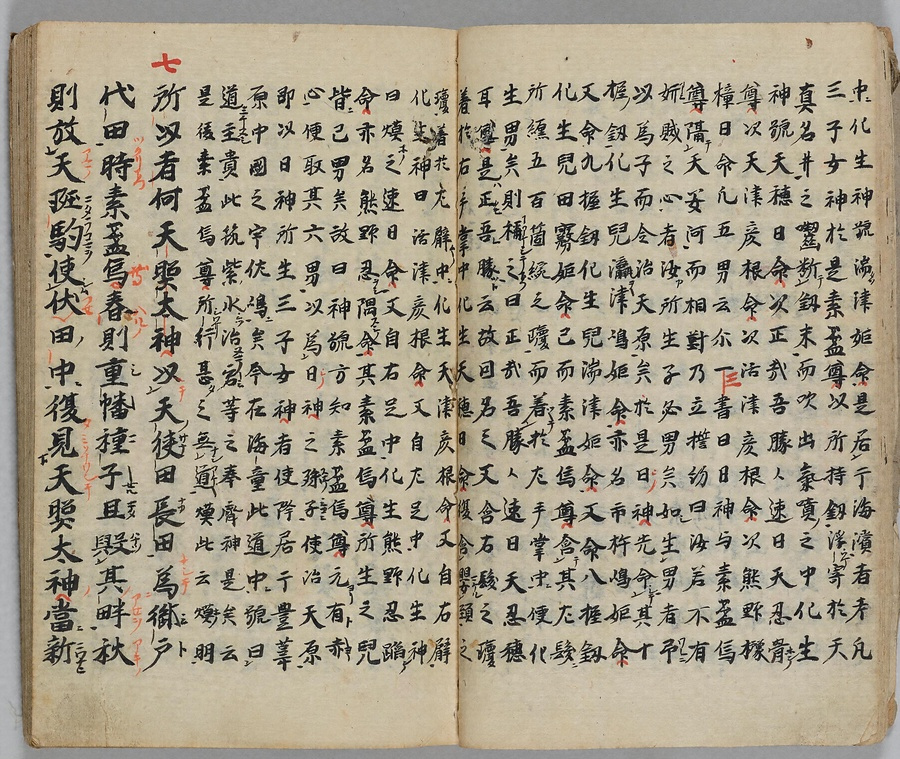 中化生神號湍津姫命是居于海濱者矣凡
三子女神於是素盞尊以所持釼浮寄於天
真名井之齧断釼末而吹出氣噴之中化生
神號天穂日命次正哉吾勝人速日天忍骨
尊次天津彦根命次活津彦根命次熊野橡
樟日命凡五男云尓 一書曰日神与素盞烏
尊隔天安河而相對乃立誓約曰汝若不有
姧賊之心者汝所生子必男矣如生男者予
以為子而令治天原矣於是日神先命其十
握釼化生兒瀛津嶋姫命亦名市杵嶋姫命
又命九握釼化生兒湍津姫命又命八握釼
化生兒田霧姫命已而素盞烏尊含其左髪
所纏五百箇統之瓊而着於左手掌中便化
生男矣則稱之曰正哉吾勝人速日天忍穂
耳是正吾勝云故因名之又含右髪之瓊
着於右手掌中化生天穂日命復含嬰頚之
瓊着於左臂中化生天津彦根命又自右臂
化生神曰活津彦根命又自左足中化生神
曰熯之速日命又自右足中化生熊野忍蹈
命亦名熊野忍隅命其素盞烏尊所生之兒
皆已男矣故曰神號方知素盞烏尊元有赤
心便取其六男以為日神之孫子使治天原
即以日神所生三子女神者使降居于豊葦
原中國之宇佐嶋矣今在海童此道中號曰
道主貴此筑紫水沼君等之奉齊神是矣云
是後素盞烏尊所行甚之無道熯此云明
七
所以者何天照太神以天使田長田為御戸
代田時素盞烏春則重幡種子且毀其畔秋
則放天斑駒使伏田中復見天照太神當新